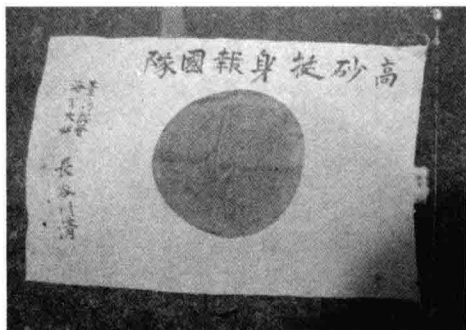 高砂挺身報國隊
長谷川清